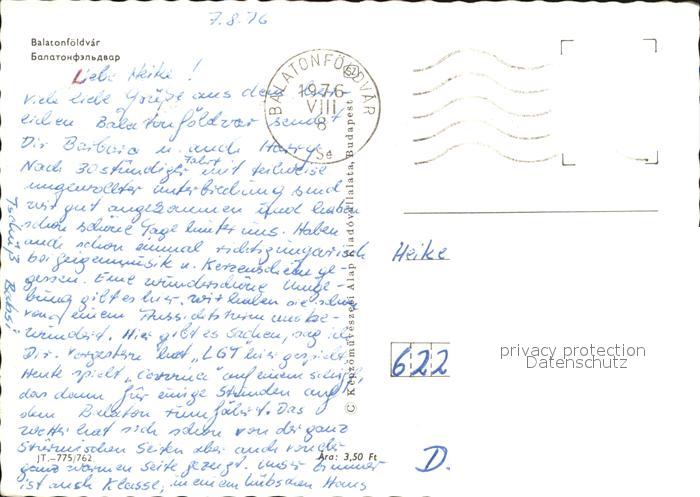 7.8.76
Balatonföldvár
Балатонфэльдвар
Liebe Heike!
Viele liebe Grüße aus dem herr-
lichen Balatonföldvar sendet
Dir Barbara u. auch Harry.
Nach 30stündiger Fahrt mit teilweise
ungewollter Unterbrechung sind
wir gut angekommen und haben
schon schöne Tage hinter uns. Haben
auch schon einmal richtig ungarisch
bei Zigeunermusik u. Kerzenschein ge-
gessen. Eine wunderschöne Umge-
bung gibt es hier, wir haben sie schon
von einem Aussichtsturm aus be-
wundert. Hier gibt es Sachen, sag ich
Dir. Vorgestern hat "LGT" hier gespielt
Heute spielt "Corvina" auf einem Schiff
das dann für einige Stunden auf
dem Balaton rumfährt. Das
Wetter hat sich schon von der ganz
stürmischen Seiten aber auch von der
ganz warmen Seite gezeigt. Unser Zimmer
ist auch Klasse, in einem hübschen Haus
Tschüß Babsi
BALATONFÖLDVÁR
1976
VIII
8
JT.-775/762
Ára: 3,50 Ft
C Képzőművészeti Alap Kiadóvállalata, Budapest
Heike
622
D.
privacy protection
Datenschutz